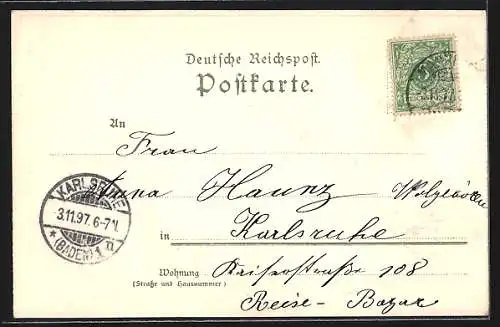 Deutsche Reichspost.
Postkarte.
An
Frau
Anna Haunz Wolgeboren
in Karlsruhe
Wohnung Kaiserstraße 108
(Straße und Hausnummer)
Reise-Bazar
KARLSRUHE
3.11.97. 6-7 N.
* (BADEN) 1.